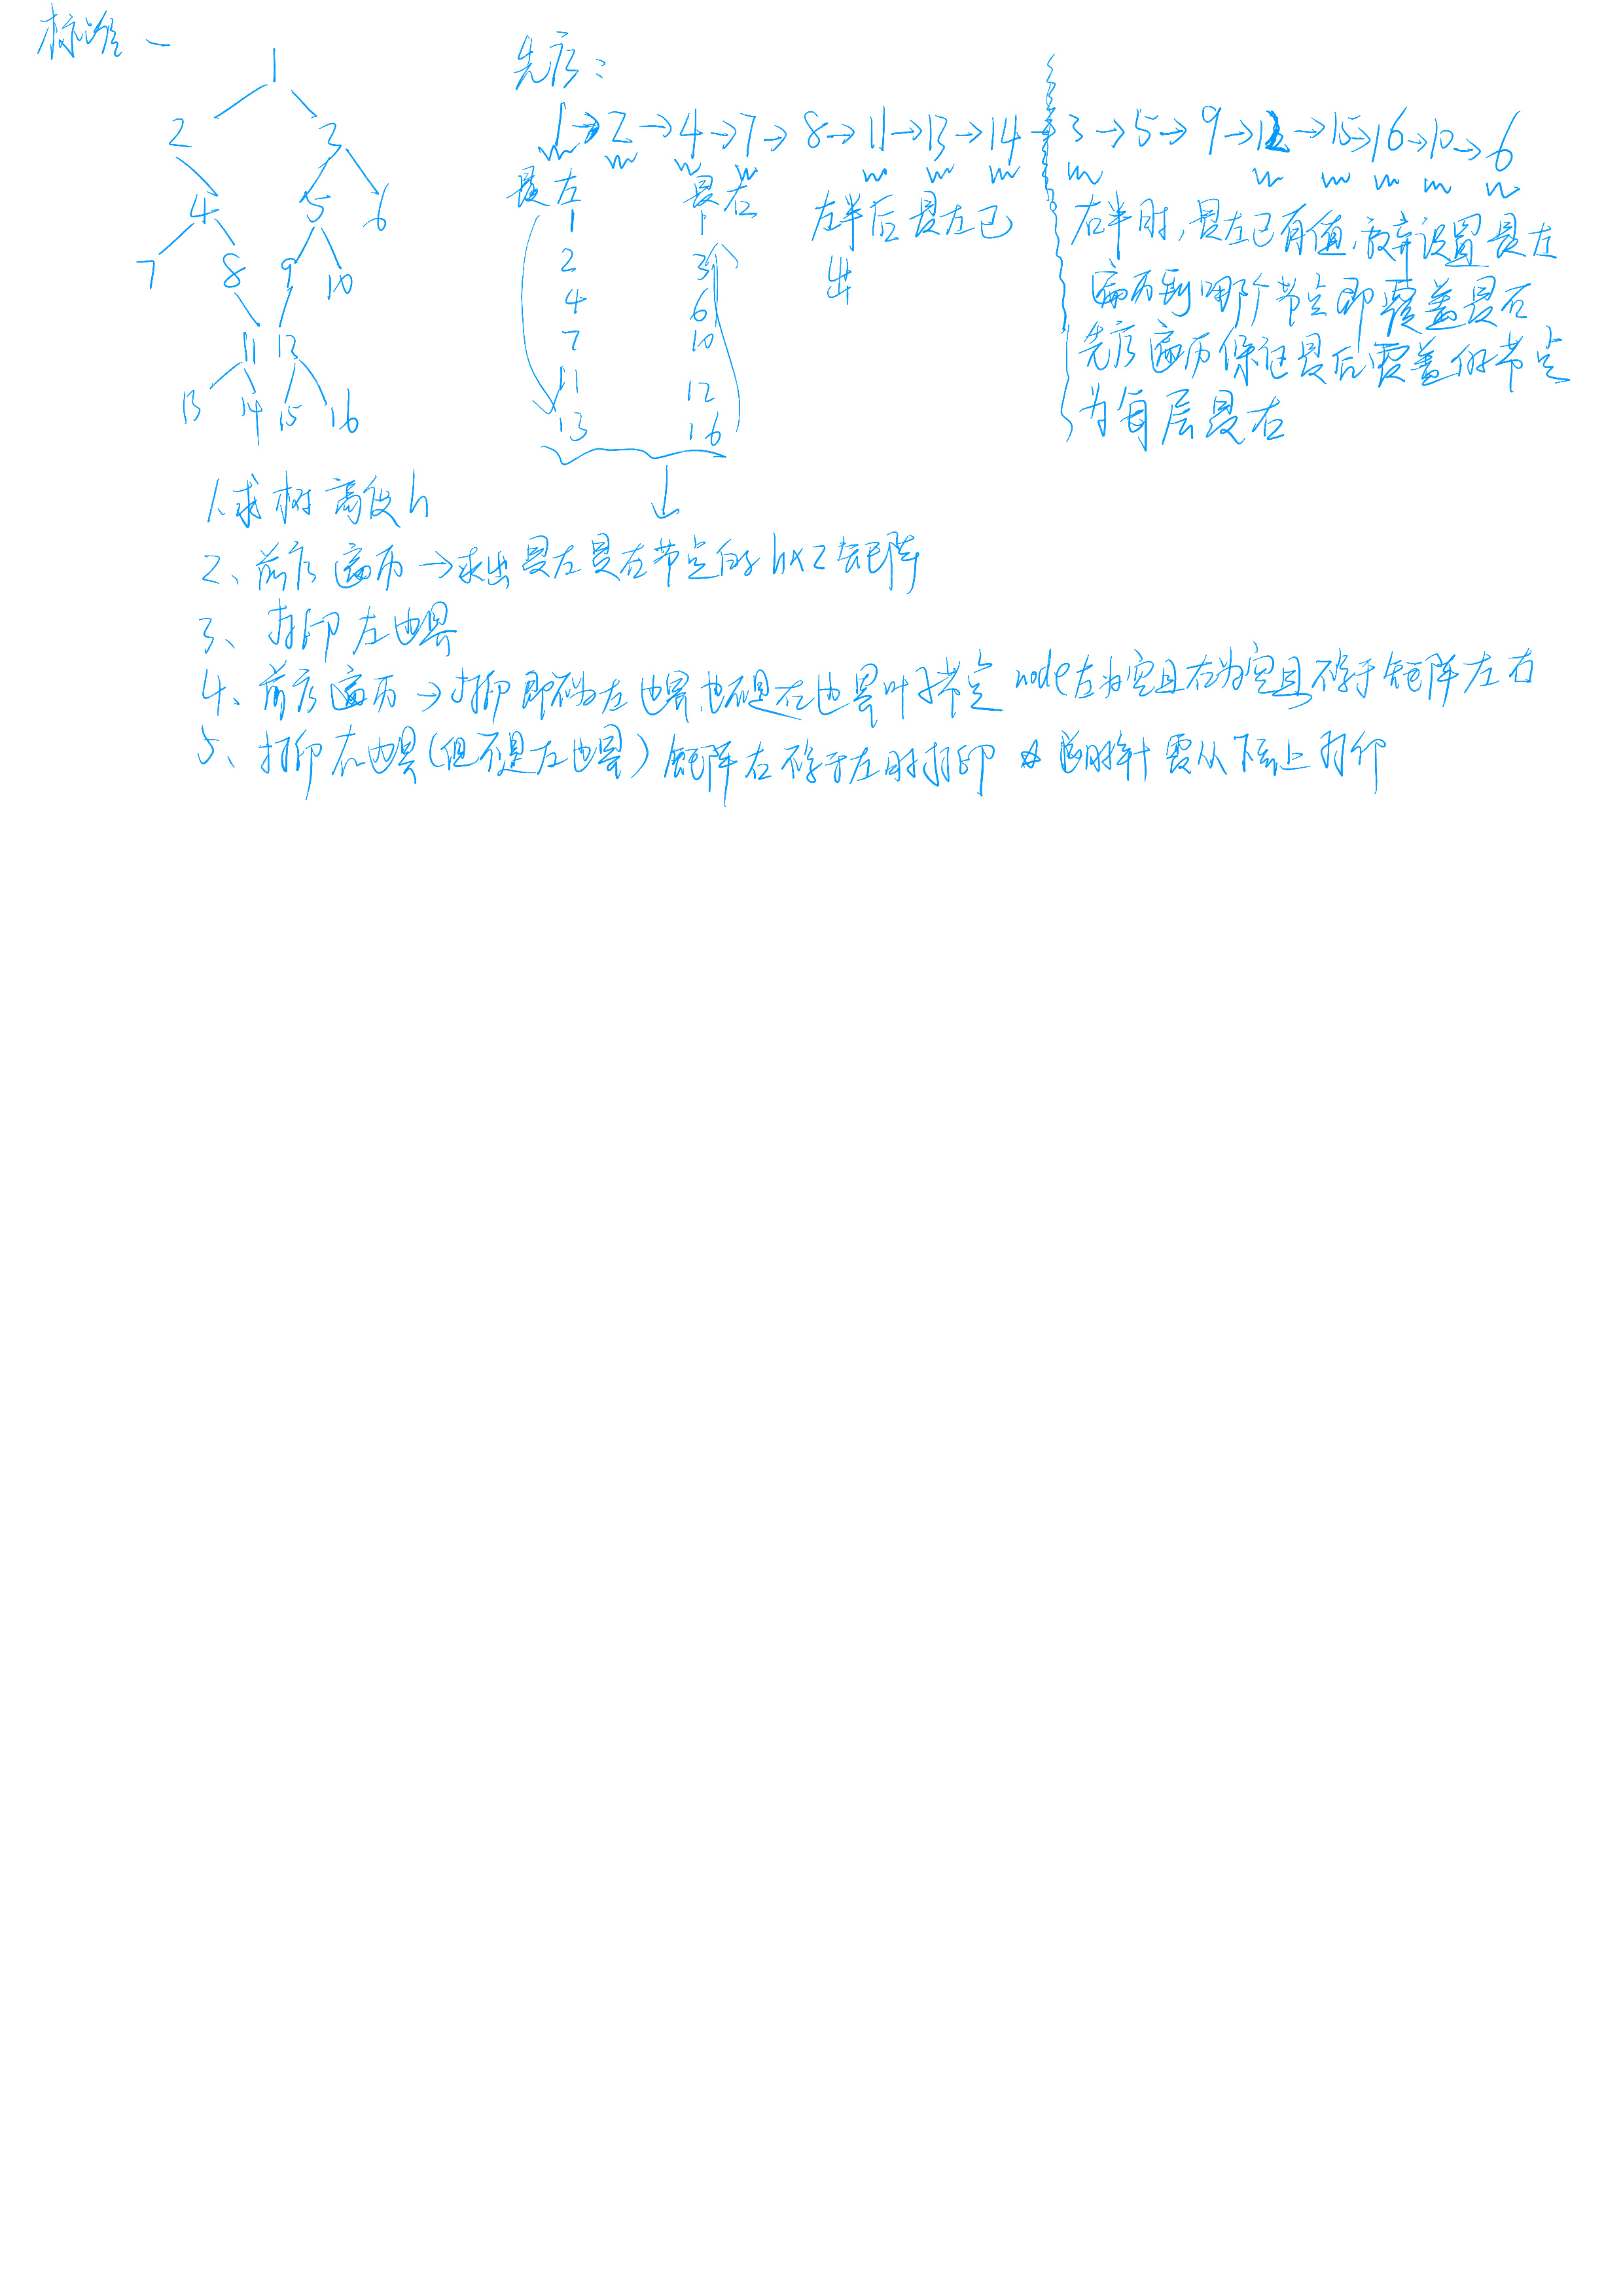 标准一
1
2 3
4 5 6
7 8 9 10
11 12
13 14 15 16
先序:
1→2→4→7→8→11→13→14→3→5→9→12→15→16→10→6
最左 最右
1 1
2 3
4 6
7 10
11 12
13 16
左半后最左已
出
右半时,最左已有值,放弃设置最左
遍历到哪个节点即覆盖最右
先序遍历保证最后覆盖的节点
为每层最右
1、求树高度h
2、前序遍历→求出最左最右节点的h×2矩阵
3、打印左边界
4、前序遍历→打印即不为左边界也不是右边界叶子节点 node左为空且右为空且不等于矩阵左右
5、打印右边界(但不是左边界)矩阵右不等于左时打印 逆时针需从下至上打印